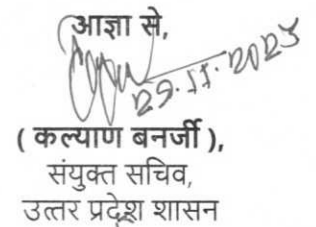 आज्ञा से,
29.11.2023
( कल्याण बनर्जी ),
संयुक्त सचिव,
उत्तर प्रदेश शासन